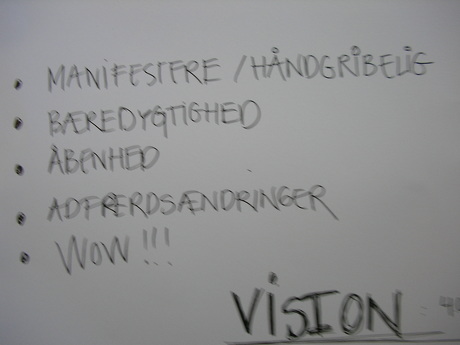 • MANIFESTERE / HÅNDGRIBELIG
• BÆREDYGTIGHED
• ÅBENHED
• ADFÆRDSÆNDRINGER
• WOW!!!
VISION